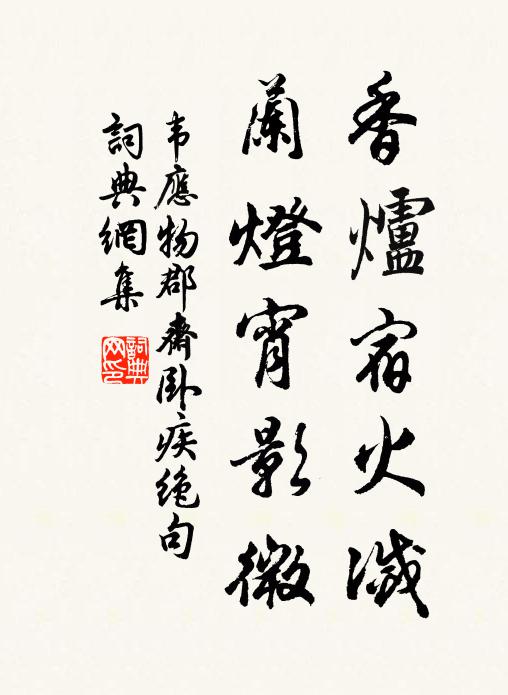 香爐宿火滅
蘭燈宵影微
韦應物郡齋卧疾绝句
詞典網集
詞典网印